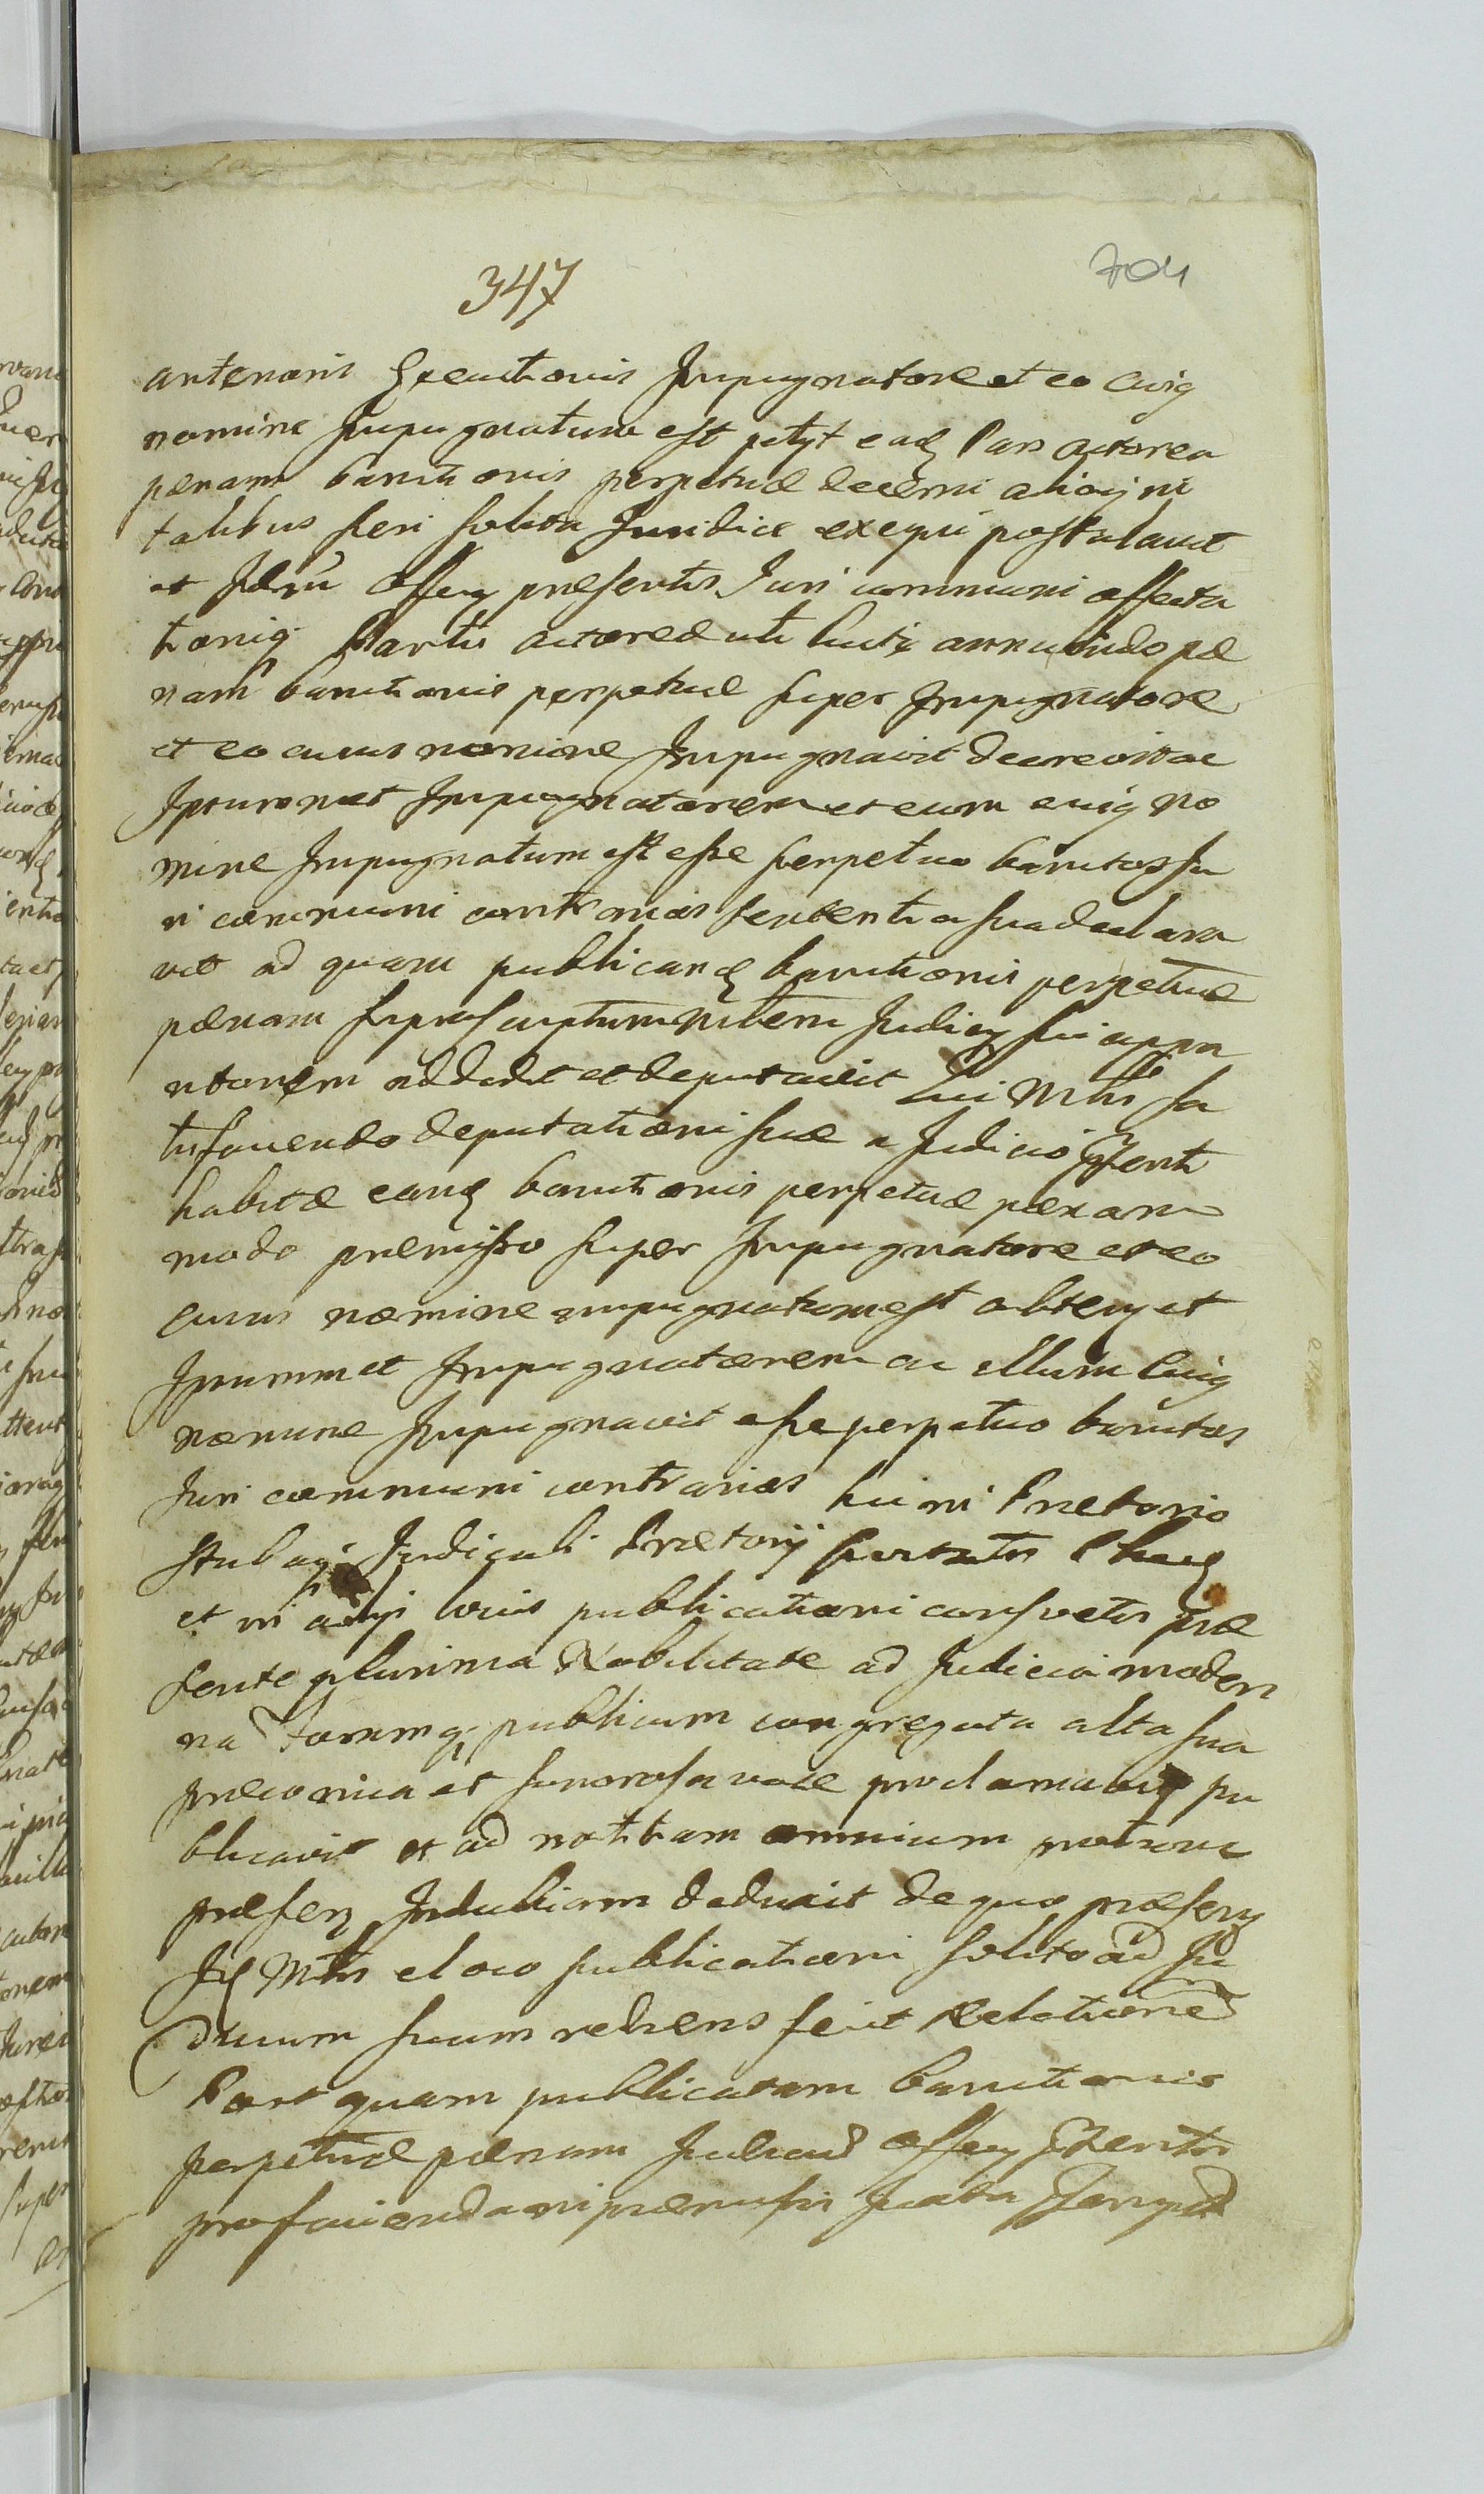 347
704
antenoris Executionis Impugnatore et eo cuiq
nomine Impugnatum est petyt eadq Pars actorea
pænam bannitionis perpetuæ decerni aliaq in
talibus fieri solita Juridice exequi postulavit
et Offey præsentis Juri communi affecta
tioniq Partis actoreæ uti Justæ annuendo pæ
nam bannitionis perpetuæ super Impugnatore
et eo cuius nomine Impugnavit decrevit ac
Ipsummet Impugnatorem et eum cuiq no
mine Impugnatum est esse perpetuo bannitos Ju
ri communi contrarios sententia sua declara
vit ad quam publicandq bannitionis perpetuæ
pænam suprascriptum Mtlem Judicy sui appa
ritorem addidit et deputavit Qui Mtlis sa
tisfaciendo deputationi suæ a Judicio pnti
habitæ eandq bannitionis perpetuæ pænam
modo præmisso super Impugnatore et eo
cuius nomine impugnatum est obtenq et
Ipsummet Impugnatorem ac illum Cuiq
nomine Impugnavit esse perpetuo bannitos
Juri communi contrarios hui ni Prætorio
Stubaq Judiciali Prætorij
et in alijs locis publicationi consvetis præ
sente plurima Nobilitate ad Judicia moder
na forumq publicum congregata alta sua
præconica et sonorosa voce proclamavit pu
blicavit et ad notitiam omnium
præsen Indubiam deduxit de quo præseny
Idq Mtlis e loco publicationi solito ad Ju
dicium suum rediens fecit Relationem
Post quam publicatam bannitionis
perpetuæ pænam Judicium Offey